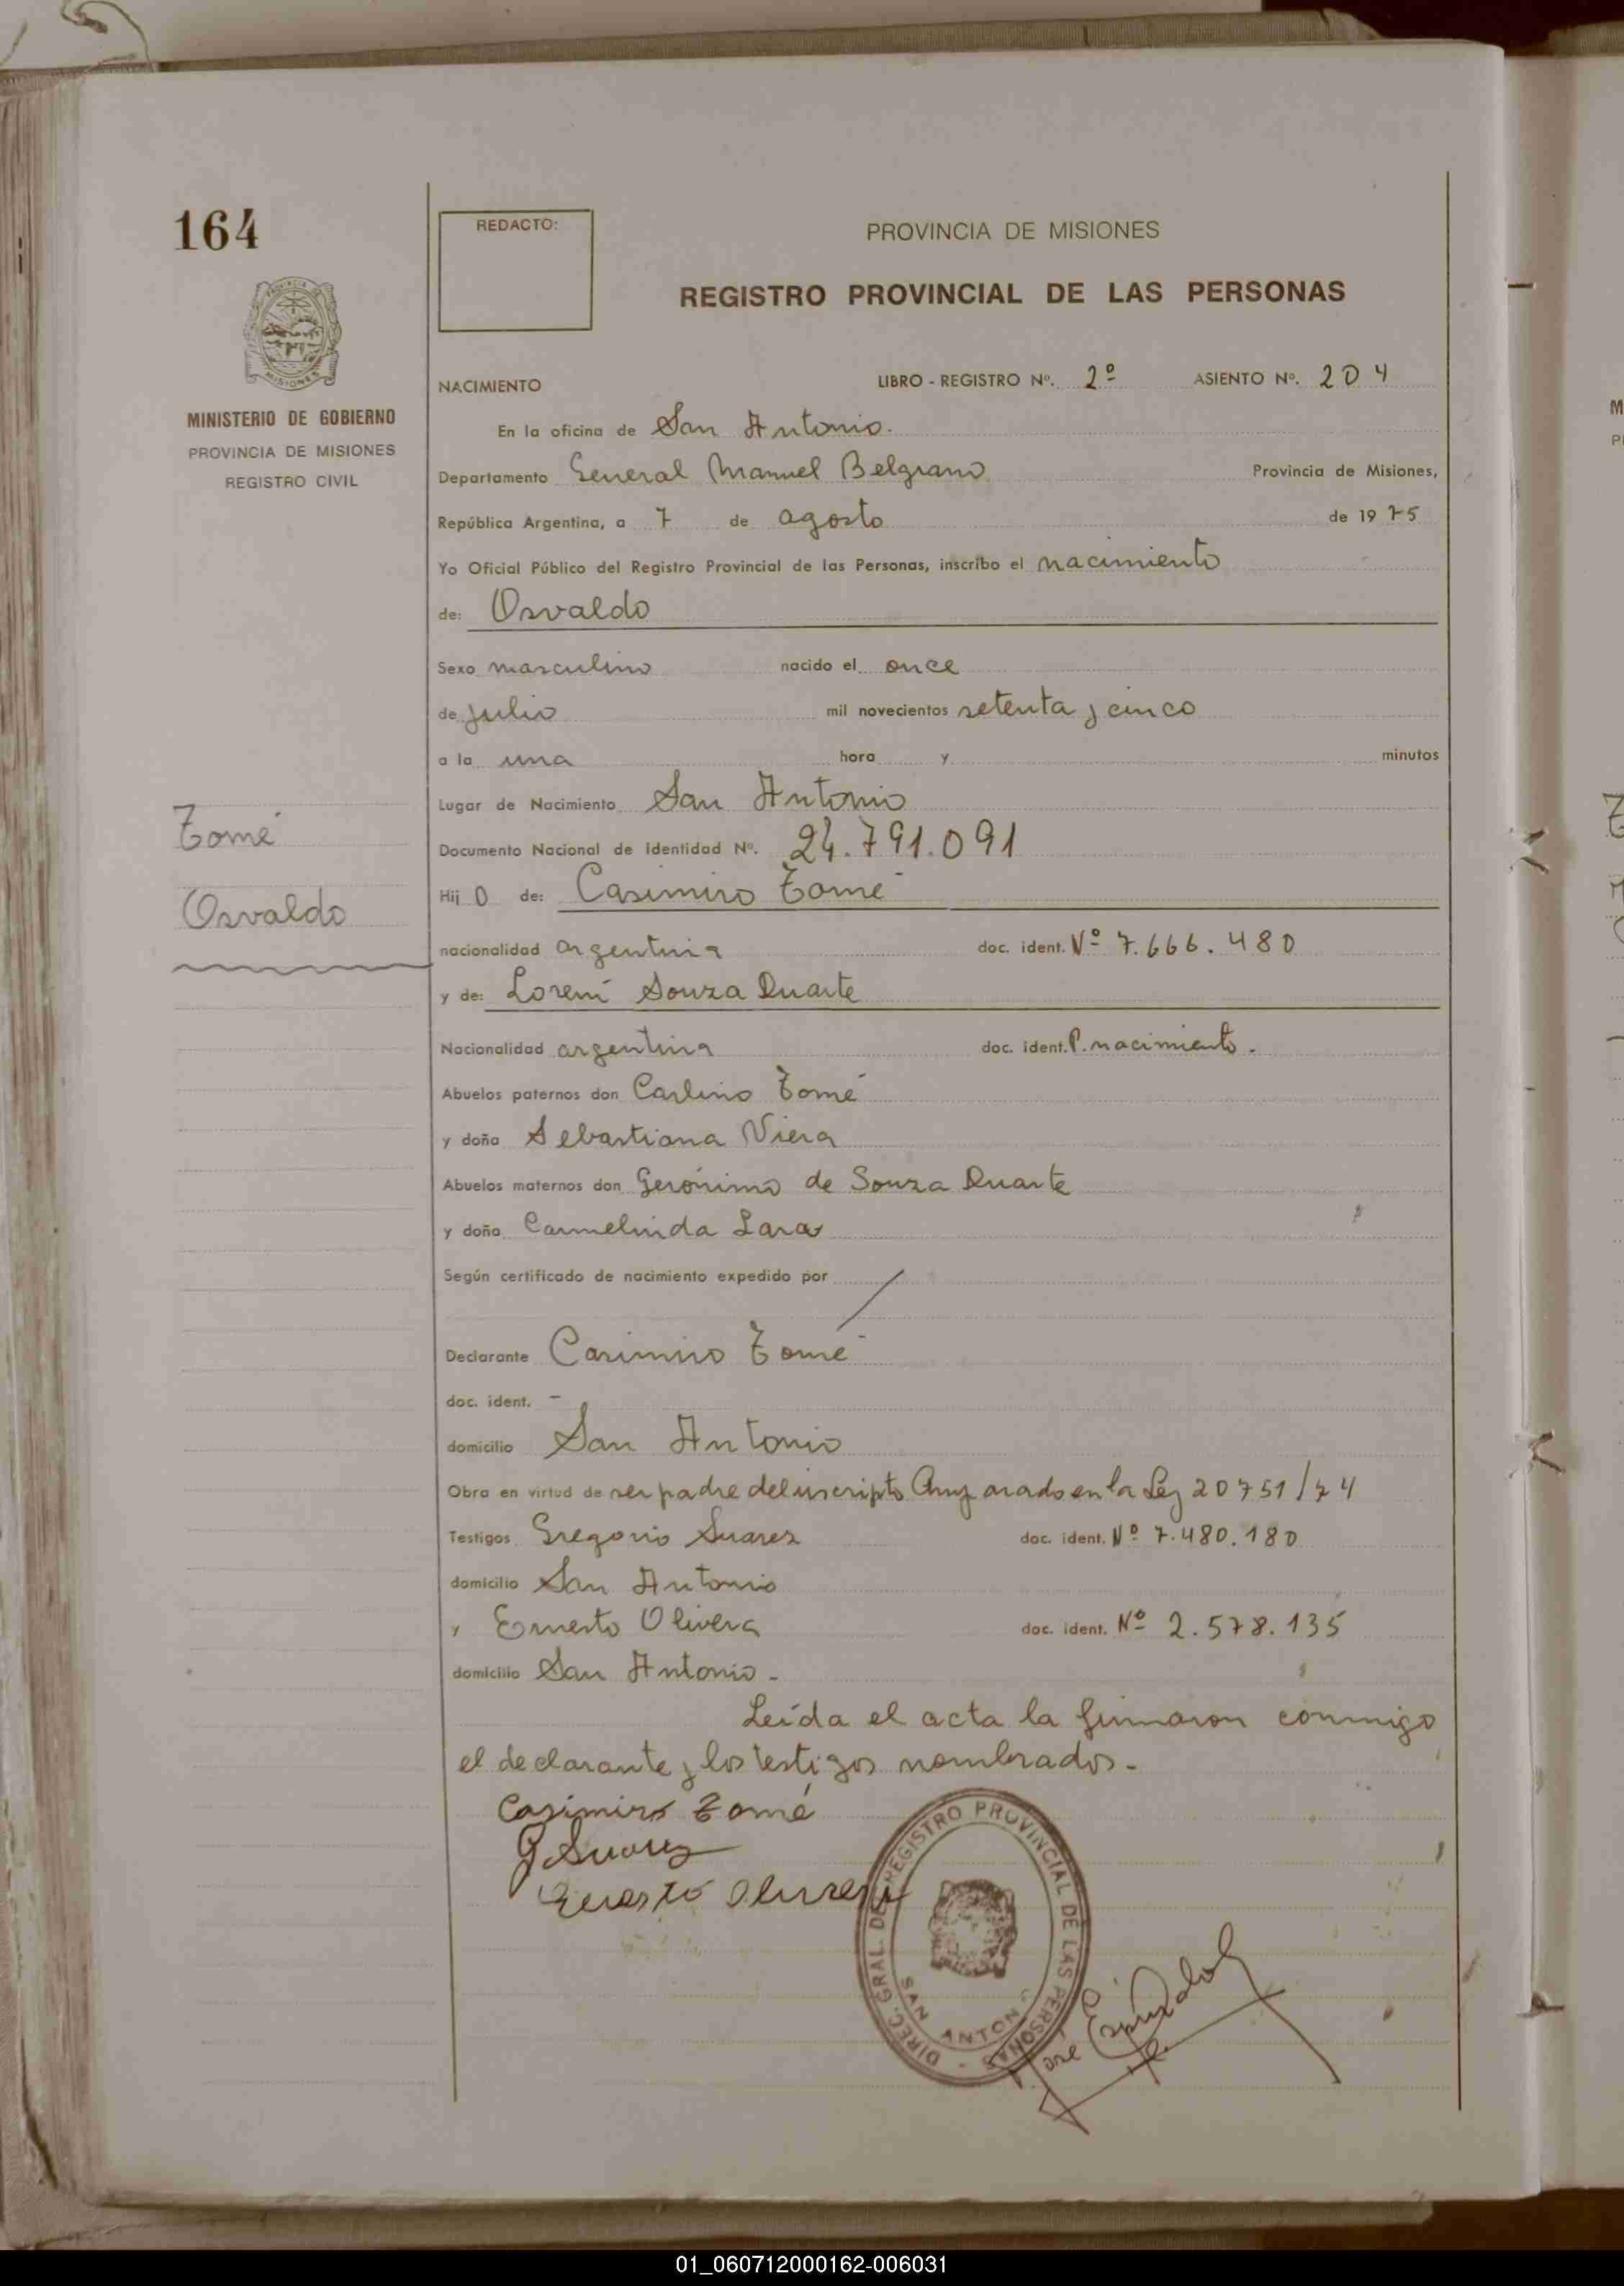 164
REDACTO:
PROVINCIA DE MISIONES
REGISTRO PROVINCIAL DE LAS PERSONAS
MINISTERIO DE GOBIERNO
PROVINCIA DE MISIONES
REGISTRO CIVIL
NACIMIENTO LIBRO - REGISTRO Nº. 2º ASIENTO Nº. 204
En la oficina de San Antonio.
Departamento General Manuel Belgrano Provincia de Misiones,
República Argentina, a 7 de agosto de 1975
Yo Oficial Público del Registro Provincial de las Personas, inscribo el nacimiento
de: Osvaldo
Sexo masculino nacido el once
de julio mil novecientos setenta y cinco
a la una hora y minutos
Lugar de Nacimiento San Antonio
Tomé
Documento Nacional de Identidad Nº. 24.791.091
Hij o de: Casimiro Tomé
Osvaldo
nacionalidad argentina doc. ident. Nº 7.666.480
y de: Lorení Souza Duarte
Nacionalidad argentina doc. ident. P. nacimiento.
Abuelos paternos don Carlino Tomé
y doña Sebastiana Viera
Abuelos maternos don Gerónimo de Souza Duarte
y doña Carmelinda Lara
Según certificado de nacimiento expedido por
Declarante Casimiro Tomé
doc. ident. -
domicilio San Antonio
Obra en virtud de ser padre del inscripto Amparado en la Ley 20751/74
Testigos Gregorio Suarez doc. ident. Nº 7.480.180
domicilio San Antonio
y Ernesto Olivera doc. ident. Nº 2.578.135
domicilio San Antonio -
Leída el acta la firmaron conmigo
el declarante y los testigos nombrados. -
Casimiro Tomé
G. Suarez
Ernesto Olivera
DIREC. GRAL. DEL REGISTRO PROVINCIAL DE LAS PERSONAS -
SAN ANTONIO
01_060712000162-006031